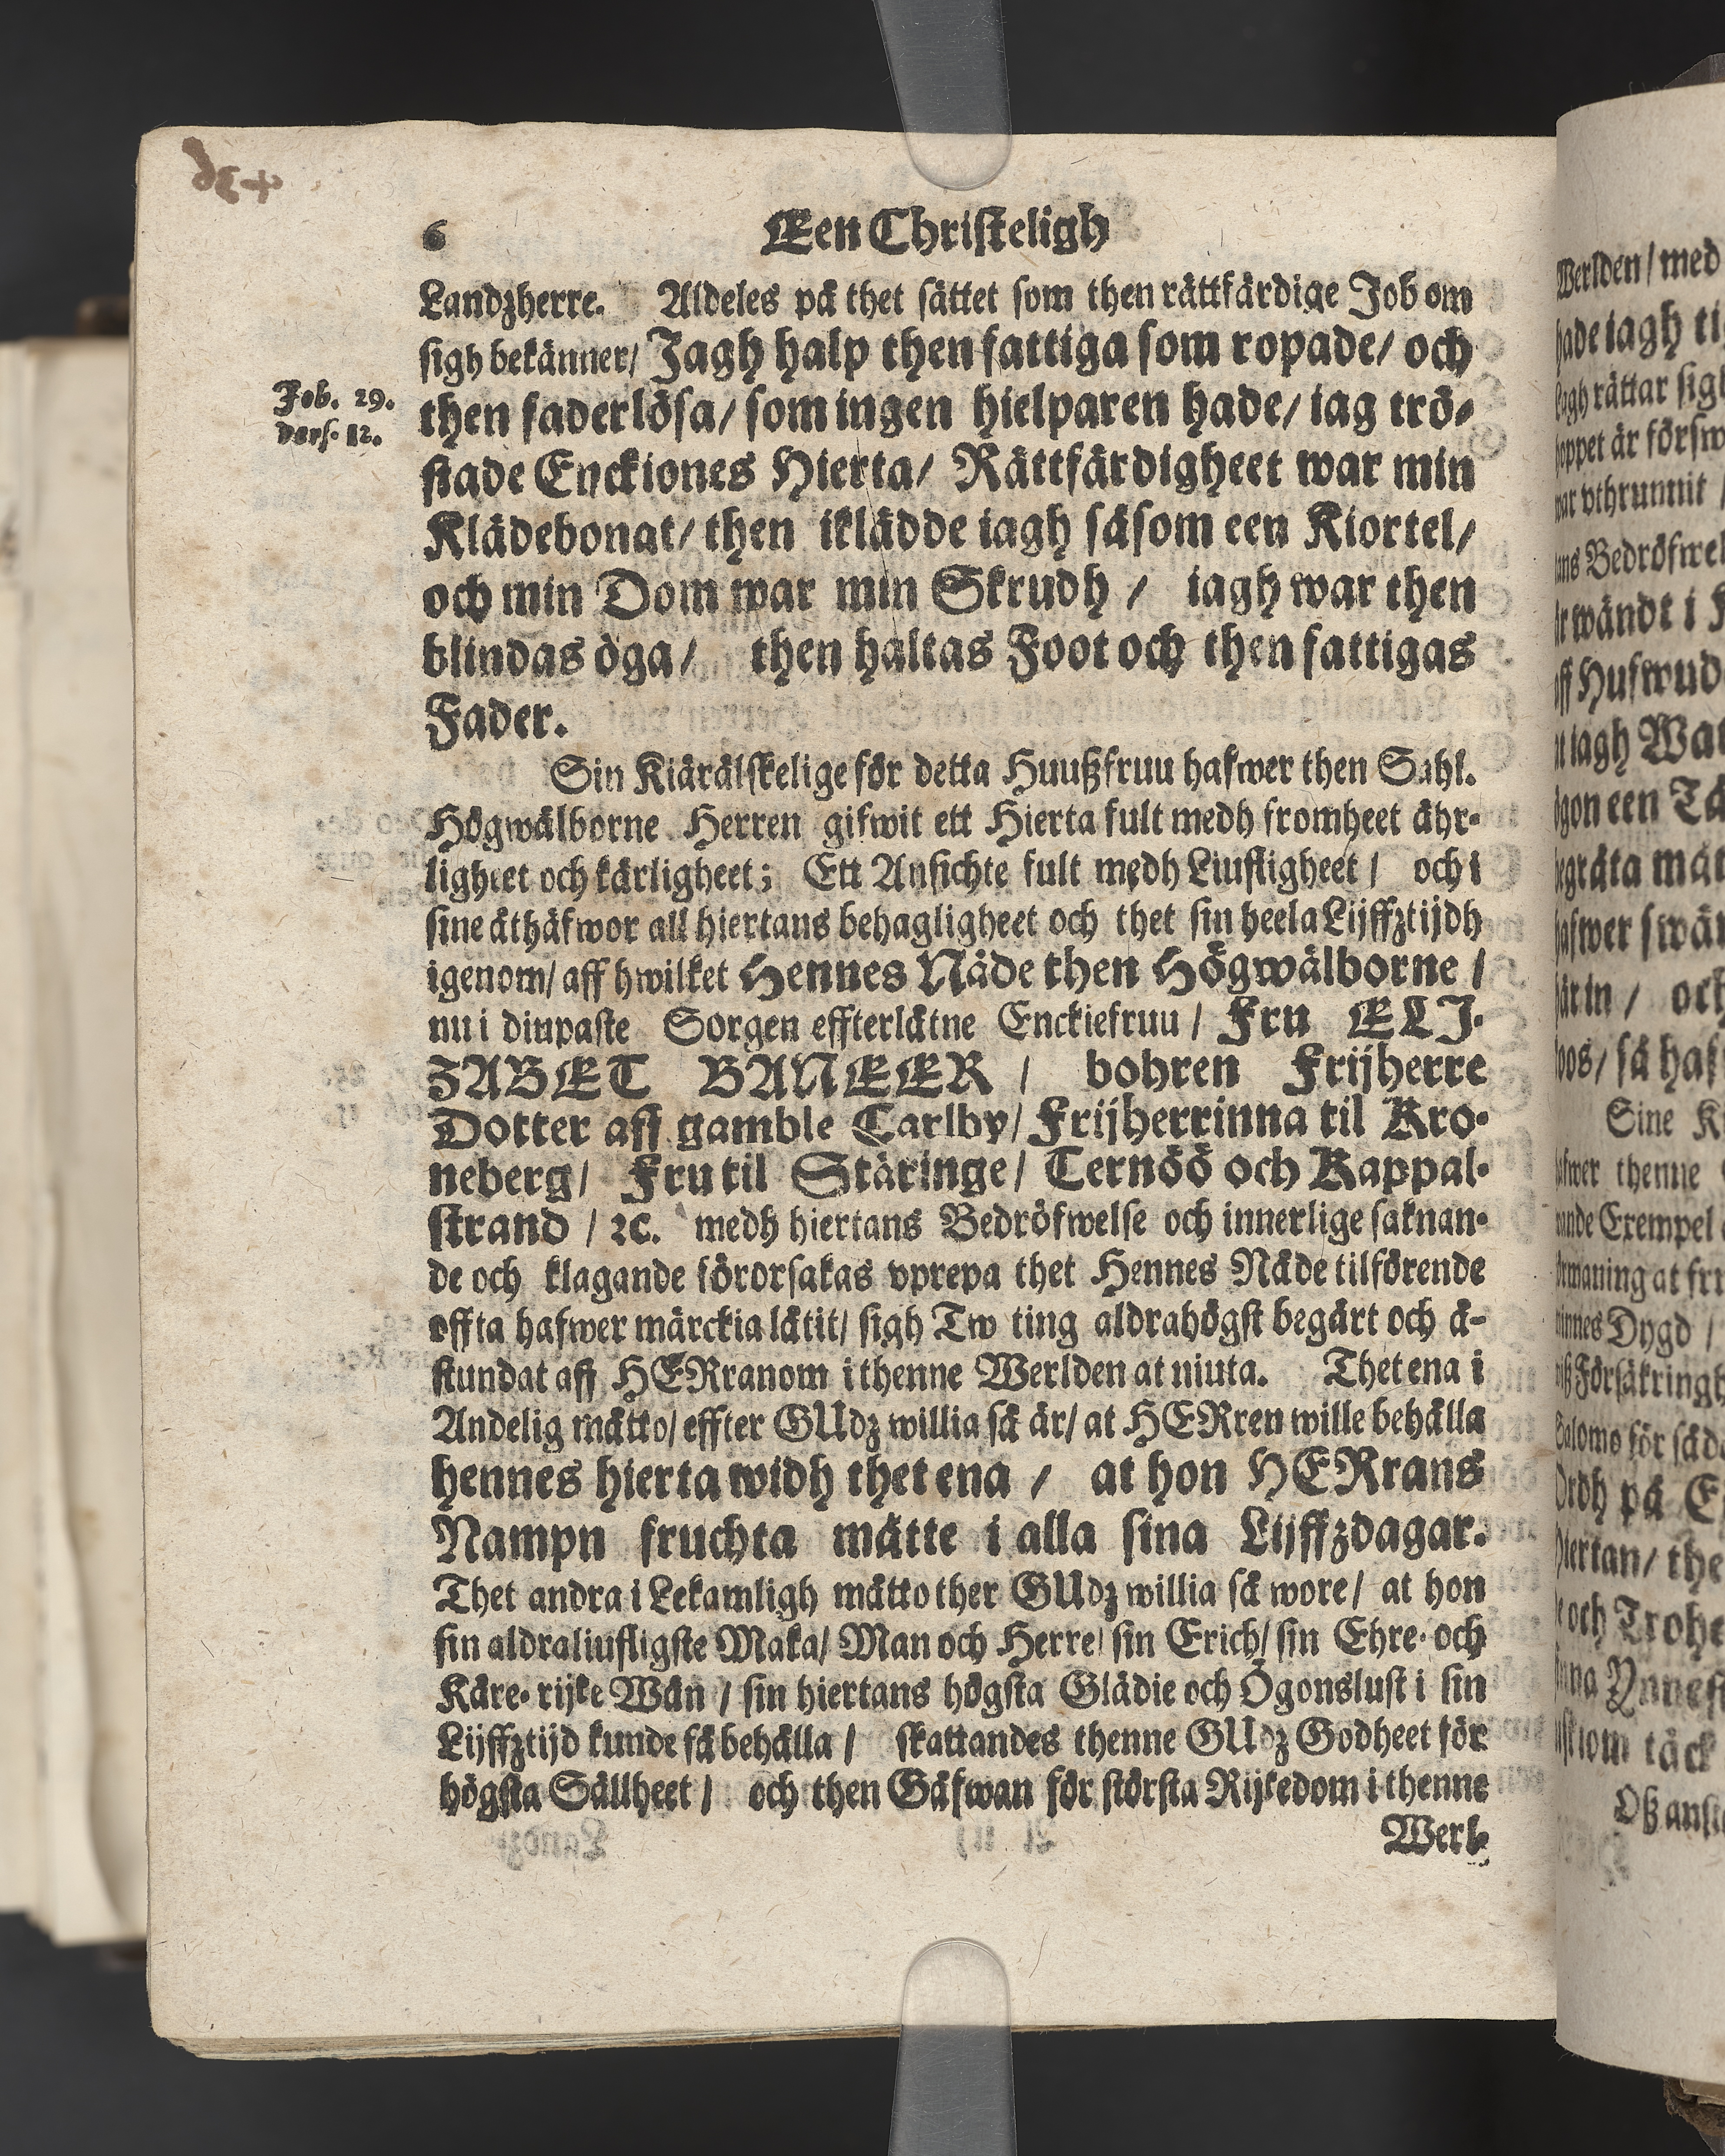 6 Een Christeligh
Landzherre. Aldeles på thet sättet som then rättfärdige Job om
sigh bekänner/ Jagh halp then fattiga som ropade/ och
Job. 29.
vers. 12.
then faderlösa/ som ingen hielparen hade/ iag trö-
stade Enckiones Hierta/ Rättfärdigheet war min
Klädebonat/ then iklädde iagh såsom een Kiortel/
och min Dom war min Skrudh / iagh war then
blindas öga/ then haltas Foot och then fattigas
Fader.
Sin Kiärälskelige för detta Huußfruu hafwer then Sahl.
Högwälborne Herren gifwit ett Hierta fult medh fromheet ähr-
ligheet och kärligheet; Ett Ansichte fult medh Liufligheet / och i
sine åthäfwor all hiertans behagligheet och thet sin heela Lijffztijdh
igenom/ aff hwilket Hennes Nåde then Högwälborne /
nu i diupaste Sorgen effterlåtne Enckiefruu / Fru ELJ-
ZABET BANEER / bohren Frijherre
Dotter aff gamble Carlby/ Frijherrinna til Kro-
neberg/ Fru til Ståringe/ Ternöö och Kappal-
strand / ꝛc. medh hiertans Bedröfwelse och innerlige saknan-
de och klagande förorsakas vprepa thet Hennes Nåde tilförende
offta hafwer märckia låtit/ sigh Tw ting aldrahögst begärt och å-
stundat aff HERranom i thenne Werlden at niuta. Thet ena i
Andelig måtto/ effter GUdz willia så är/ at HERren wille behålla
hennes hierta widh thet ena / at hon HERrans
Nampn fruchta måtte i alla sina Lijffzdagar.
Thet andra i Lekamligh måtto ther GUdz willia så wore/ at hon
sin aldraliufligste Maka/ Man och Herre/ sin Erich/ sin Ehre- och
Käre-rijke Wän / sin hiertans högsta Glädie och Ögonslust i sin
Lijffztijd kunde få behålla / skattandes thenne GUdz Godheet för
högsta Sällheet / och then Gåfwan för största Rijkedom i thenne
Werl-
Werlden/ med
hade iagh
rättar
är
vthrunnit
Bedröfwel
wändt i
Hufwud
iagh
een
begråta
hafwer
/ och
så
Sine
thenne
Exempel
Dygd /
Salomo för
Ordh på
Hiertan/
och
täck